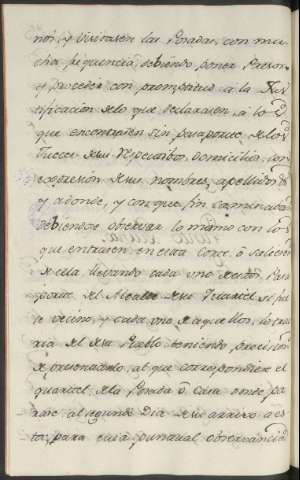 nos, y visitasen las Posadas, con mu-
cha frequencia, debiendo poner Presos
y proceder con promptitud a la Jus-
tificacion de lo que declarasen, a los
que encontrasen sin pasaporte de los
Jueces de sus respectivos domicilios, con
expresion de sus nombres, apellidos
y adonde, y con que fin caminaban
debiendose observar lo mismo con los
que entrasen en esta Corte, ò saliesen
de ella llevando cada uno de estos Pasa-
porte del Alcalde de su Quartel si fue-
se vecino, y cada uno de aquellos, lo trae-
ria de su Pueblo teniendo precision
de presentarlo, al que correspondiere el
quartel de la Posada ò casa donde pa-
rase, al segundo Dia de su arrivo a es-
ta, para cuia puntual observancia